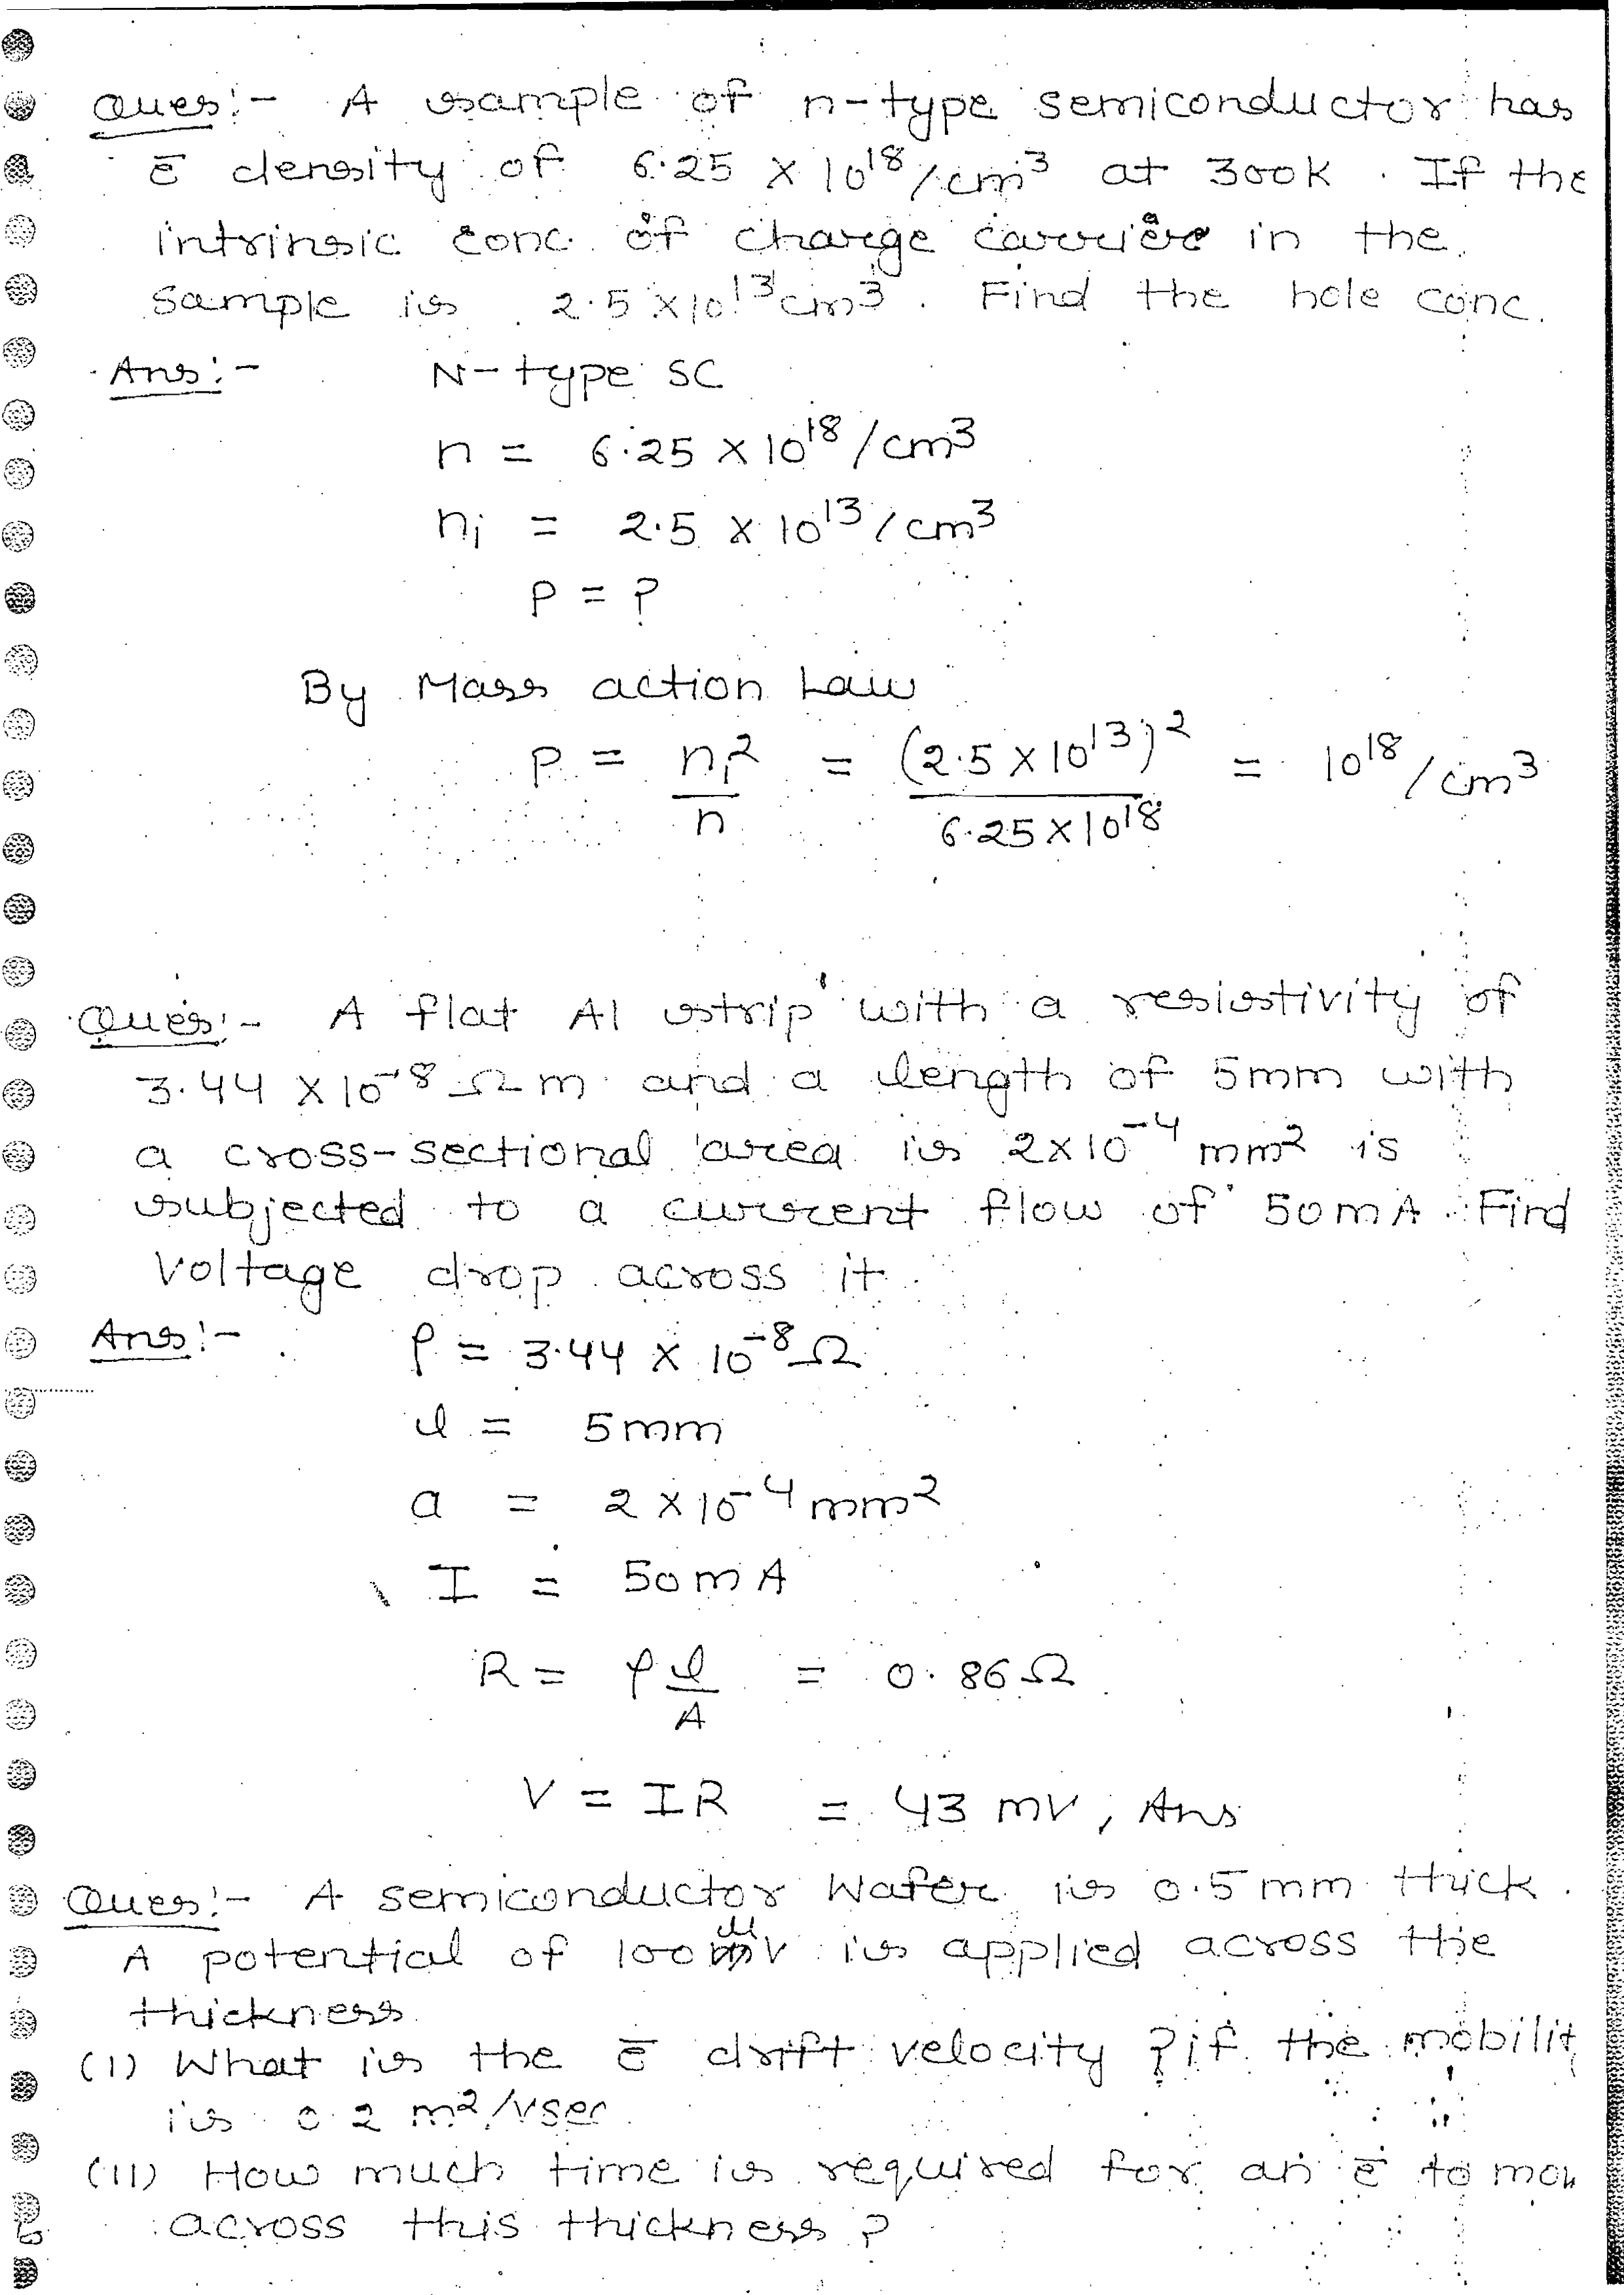 Ques:- A sample of n-type semiconductor has
ē density of 6.25 × 10¹⁸/cm³ at 300K. If the
intrinsic conc. of charge carrier in the
sample is 2.5×10¹³cm³. Find the hole conc.
Ans:- N-type SC
n = 6.25 × 10¹⁸/cm³
nᵢ = 2.5 × 10¹³/cm³
P = ?
By Mass action Law
P = nᵢ²/n = (2.5×10¹³)²/6.25×10¹⁸ = 10¹⁸/cm³
Ques:- A flat Al strip with a resistivity of
3.44 × 10⁻⁸ Ωm and a length of 5mm with
a cross-sectional area is 2×10⁻⁴ mm² is
subjected to a current flow of 50mA. Find
Voltage drop across it.
Ans:- ρ = 3.44 × 10⁻⁸Ω
l = 5mm
a = 2 × 10⁻⁴mm²
I = 50mA
R = ρl/A = 0.86Ω
V = IR = 43 mV, Ans
Ques:- A semiconductor Wafer is 0.5mm thick.
A potential of 100μV is applied across the
thickness
(I) What is the ē drift velocity ? if the mobilit
is 0.2 m²/vsec
(II) How much time is required for an ē to mov
across this thickness?